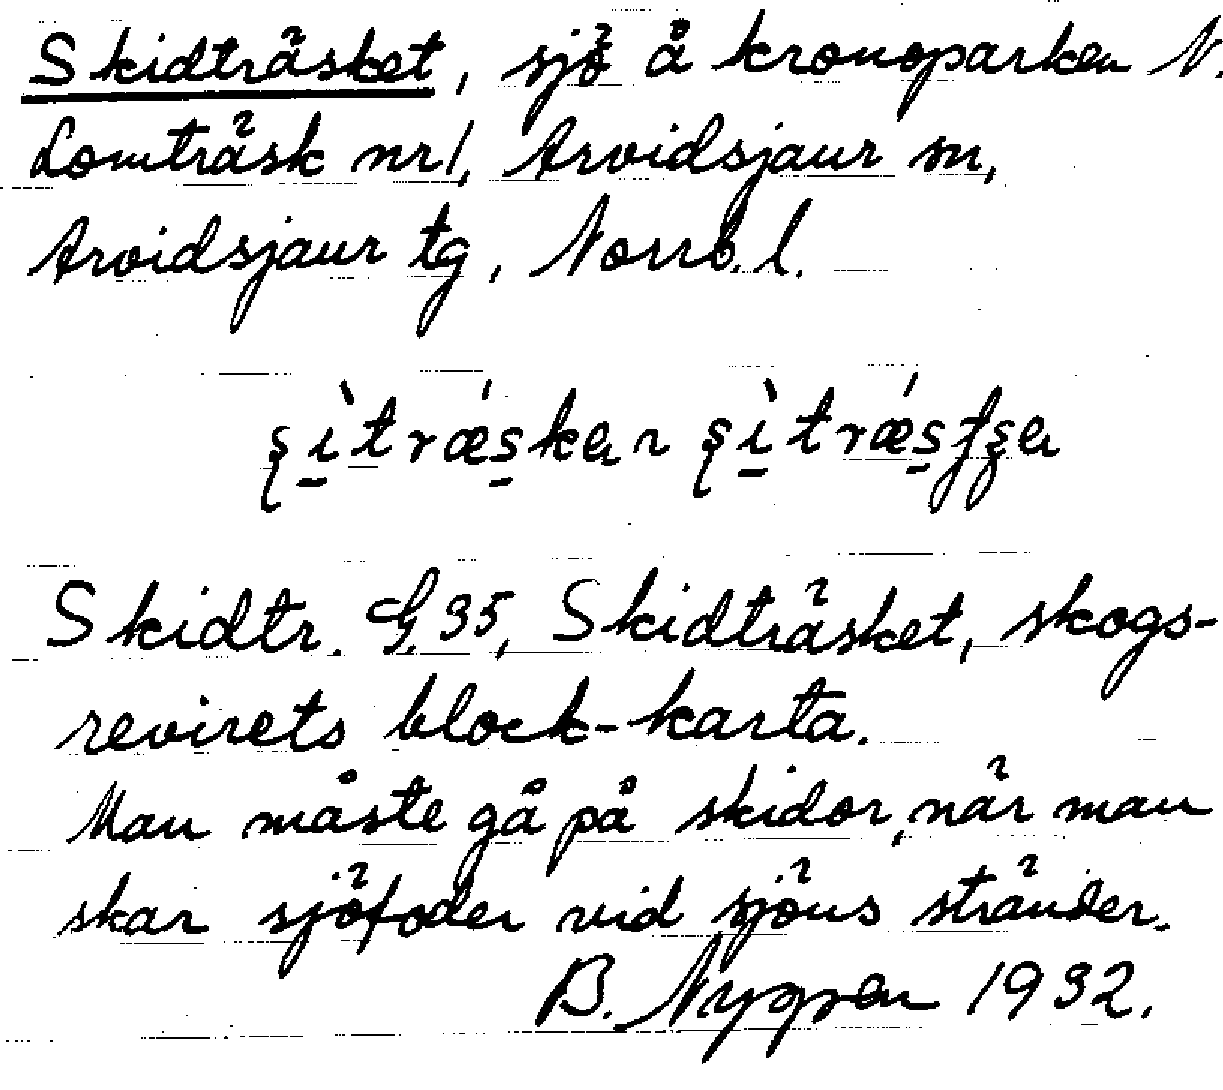 Skidträsket, sjö å kronoparken N.
Lomträsk nr 1, Arvidsjaur sn,
Arvidsjaur tg, Norrb. l.
Skidtr. G. 35, Skidträsket, skogs-
revirets block-karta.
Man måste gå på skidor, när man
skar sjöfoder vid sjöns stränder.
B. Nygren 1932.